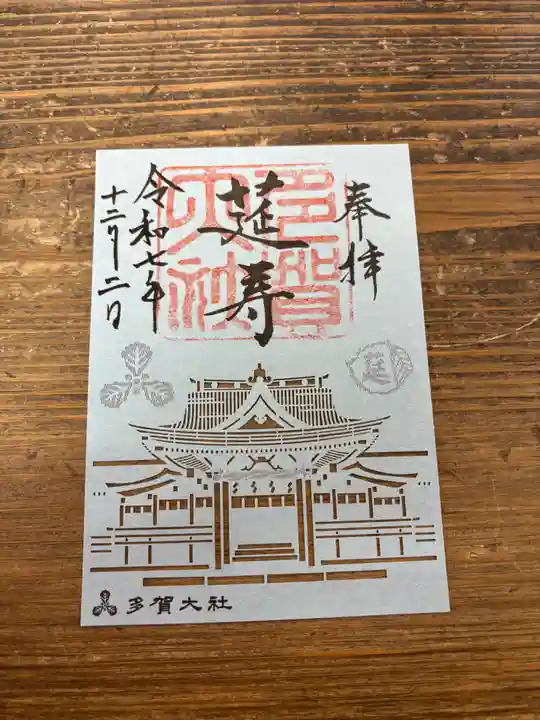 奉拝
多賀
大社
莚寿
令和七年
十二月二日
莚
多賀大社